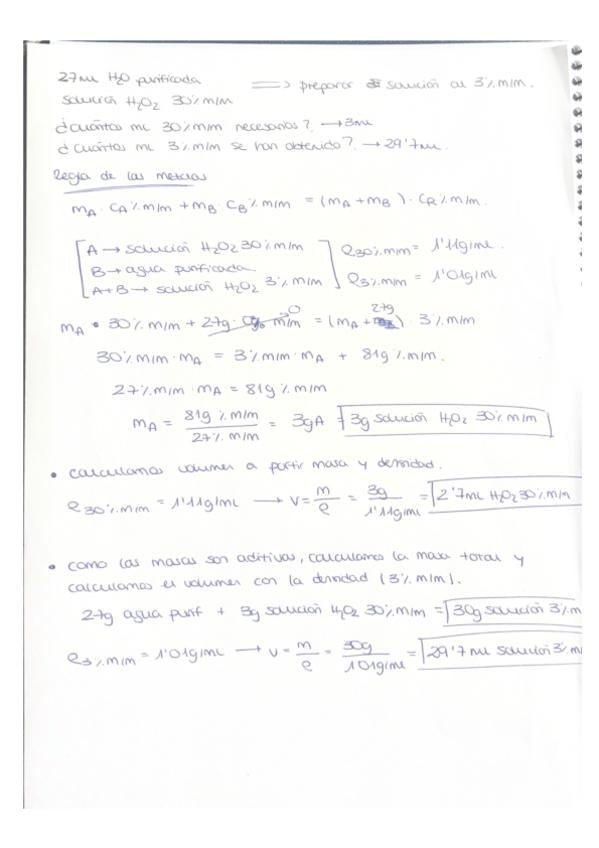 27mL H₂O purificada ⟹ preparar solución al 3% m/m.
solución H₂O₂ 30% m/m
¿cuántos mL 30% m/m necesarios? → 3mL
¿cuántos mL 3% m/m se han obtenido? → 29'7mL.
Regla de las mezclas
mA · CA % m/m + mB · CB % m/m = (mA + mB) · CR % m/m.
A → solución H₂O₂ 30% m/m
ρ30% m/m = 1'11g/mL.
B → agua purificada
A+B → solución H₂O₂ 3% m/m
ρ3% m/m = 1'01g/mL
mA · 30% m/m + 27g · 0% m/m → 0 = (mA + 27g) · 3% m/m
30% m/m · mA = 3% m/m · mA + 81g % m/m.
27% m/m · mA = 81g % m/m
mA = 81g % m/m / 27% m/m = 3g A = 3g solución H₂O₂ 30% m/m
• calculamos volumen a partir masa y densidad.
ρ30% m/m = 1'11g/mL → V = m/ρ = 3g / 1'11g/mL = 2'7mL H₂O₂ 30% m/m
• como las masas son aditivas, calculamos la masa total y
calculamos el volumen con la densidad (3% m/m).
27g agua purif + 3g solución H₂O₂ 30% m/m = 30g solución 3% m
ρ3% m/m = 1'01g/mL → V = m/ρ = 30g / 1'01g/mL = 29'7 mL solución 3% m/